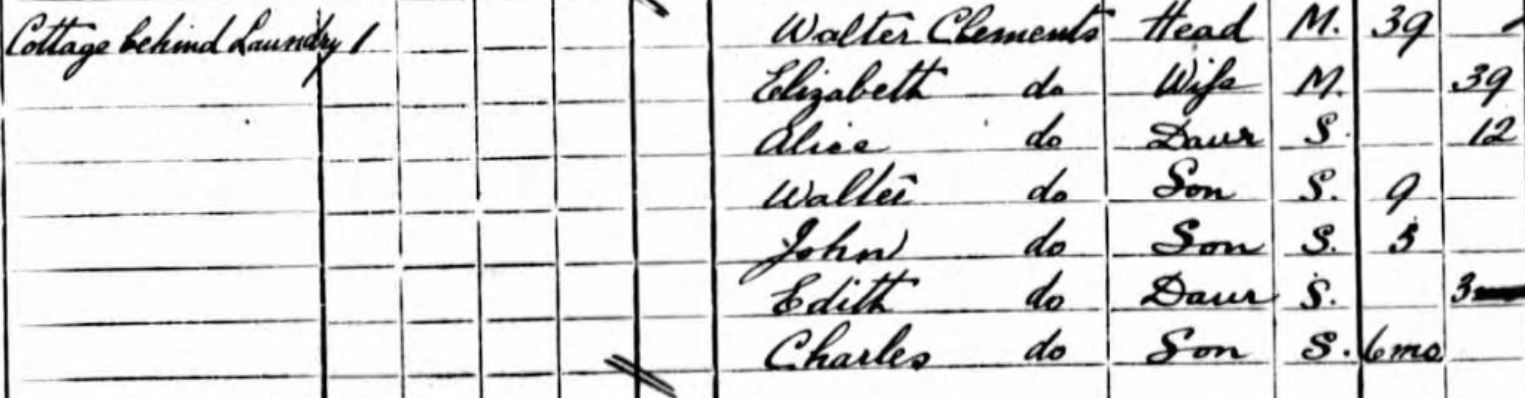 Cottage behind Laundry 1 Walter Clements Head M. 39
Elizabeth do Wife M. 39
Alice do Daur S. 12
Walter do Son S. 9
John do Son S. 5
Edith do Daur S. 3
Charles do Son S. 6mo